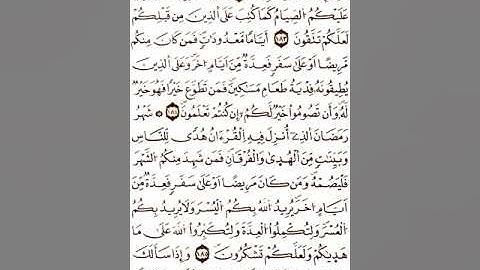 عَلَيْكُمُ الصِّيَامُ كَمَا كُتِبَ عَلَى الذِينَ مِن قَبْلِكُمْ
لَعَلَّكُمْ تَتَّقُونَ ١٨٣ أَيَّاماً مَّعْدُودَٰتٍ فَمَن كَانَ مِنكُم
مَّرِيضاً اَوْ عَلَىٰ سَفَرٍ فَعِدَّةٌ مِّنَ اَيَّامٍ اخَرَ وَعَلَى الذِينَ
يُطِيقُونَهُۥ فِدْيَةُ طَعَامِ مَسَٰكِينَ فَمَن تَطَوَّعَ خَيْراً فَهُوَ خَيْرٌ
لَّهُۥ وَأَن تَصُومُواْ خَيْرٌ لَّكُمُۥٓ إِن كُنتُمْ تَعْلَمُونَ ١٨٤ ۞ شَهْرُ
رَمَضَانَ الذِےٓ أُنزِلَ فِيهِ اِ۬لْقُرْءَانُ هُدىً لِّلنَّاسِ
وَبَيِّنَٰتٍ مِّنَ اَ۬لْهُدَىٰ وَالْفُرْقَانِ فَمَن شَهِدَ مِنكُمُ الشَّهْرَ
فَلْيَصُمْهُ وَمَن كَانَ مَرِيضاً اَوْ عَلَىٰ سَفَرٍ فَعِدَّةٌ مِّنَ
اَيَّامٍ اخَرَ يُرِيدُ اللَّهُ بِكُمُ الْيُسْرَ وَلَا يُرِيدُ بِكُمُ
الْعُسْرَ وَلِتُكْمِلُواْ الْعِدَّةَ وَلِتُكَبِّرُواْ اللَّهَ عَلَىٰ مَا
هَدَىٰكُمْ وَلَعَلَّكُمْ تَشْكُرُونَ ١٨٥ وَإِذَا سَأَلَكَ